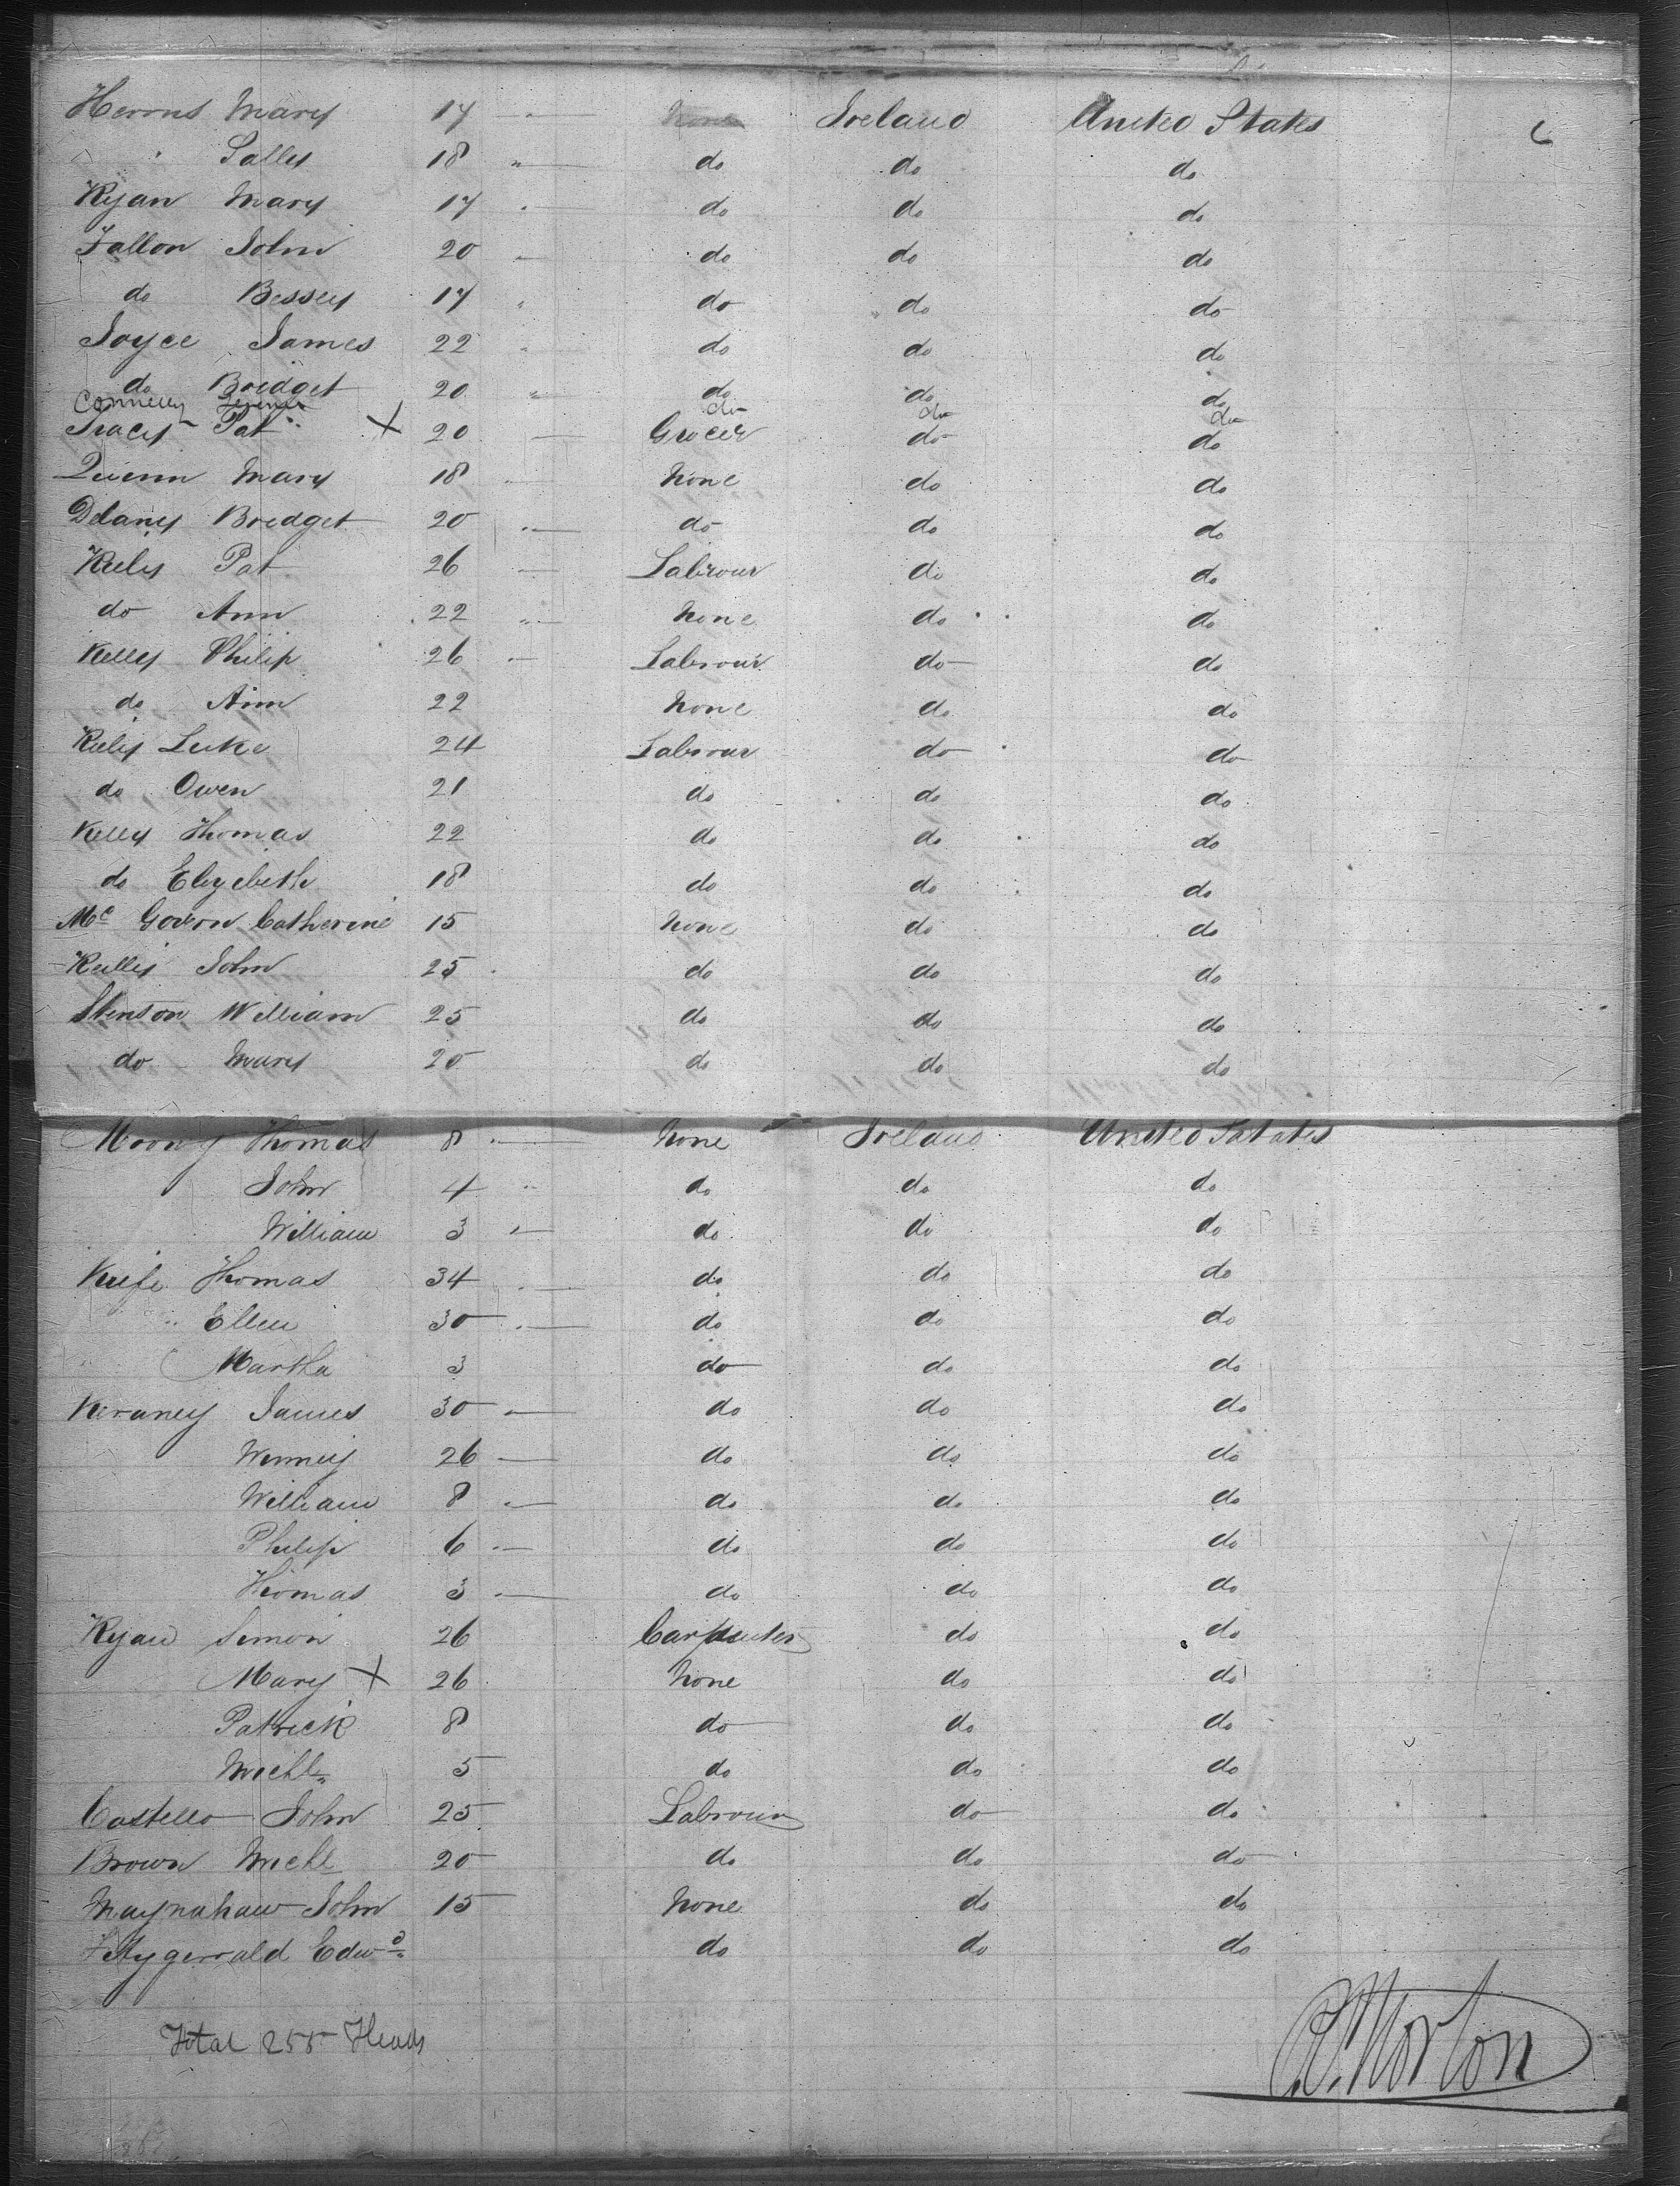 Herrns Mary 17 " None Ireland United States 6
" Sally 18 " do do do
Ryan Mary 17 " do do do
Fallon John 20 " do do do
do Bessey 17 " do do do
Joyce James 22 " do do do
do Bridget 20 " do do do
Connelly do do do
Tracey Pat X 20 Grocer do do
Quinn Mary 18 " None do do
Delany Bredget 20 " do do do
Keiley Pat 26 Labrour do do
do Ann 22 " None do do
Kelly Philip 26 " Labrour do do
do Ann 22 None do do
Keiley Luke 24 Labrour do do
do Owen 21 do do do
Kelly Thomas 22 do do do
do Elizebeth 18 do do do
Mc Govern Catherine 15 None do do
Keilley John 25 do do do
Stenson William 25 do do do
do Mary 20 do do do
Moony Thomas 8 " None Ireland United Satates
John 4 " do do do
William 3 " do do do
Keife Thomas 34 " do do do
" Ellen 30 " do do do
Martha 3 do do do
Keraney James 30 " do do do
Wenney 26 do do do
William 8 " do do do
Philip 6 " do do do
Thomas 3 " do do do
Ryan Simon 26 Carpenter do do
Mary X 26 None do do
Patrick 8 do do do
Michl 5 do do do
Costello John 25 Labrour do do
Brown Michl 20 do do do
Maynahaw John 15 None do do
Fitzgerrald Edwd do do do
Total 255 Heads
Morton